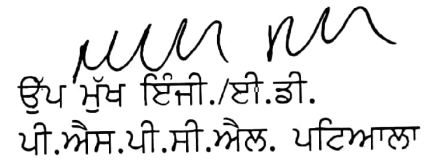 ਉੱਪ ਮੁੱਖ ਇੰਜੀ./ਈ.ਡੀ.
ਪੀ.ਐਸ.ਪੀ.ਸੀ.ਐਲ. ਪਟਿਆਲਾ